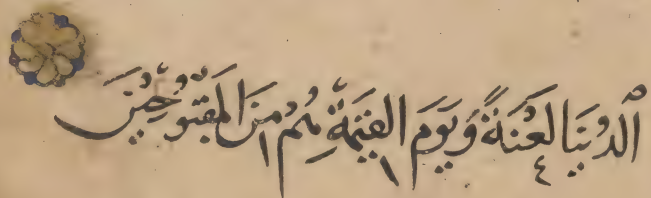 الدُّنْيَا لَعْنَةً وَيَوْمَ الْقِيٰمَةِ هُمْ مِنَ الْمَقْبُوحِيْنَ